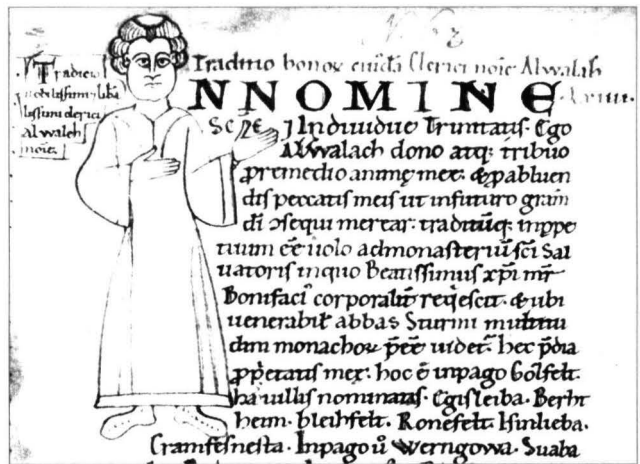 Traditio bonoꝝ cuiꝰdā Clerici noīe Alwalah
Tradicio
nobilissimi
lissimi clerici
alwaleh
noīe.
N NOMINE
Scȩ ⁊ Indiuidue Trinitatis. Ego
Alwalach dono atq; tribuo
ꝓremedio animę meę. & ꝓabluen
dis peccatis meis ut infuturo gram
dī ↄsequi merear. traditūq; inppe
tuum eē uolo admonasteriū sc̄i Sal
uatoris inquo Beatissimus xp̄i mr̄
Bonifaciꝰ corporalit̄ reqescit. & ubi
uenerabil̄ abbas Sturmi multitu
dini monachoꝝ p̄eē uidet̄. hec p̄dia
ꝓprietatis meę. hoc ē inpago Golfelt.
ha uillis nominatis. Egisleiba. Berht
heim. bleihfelt. Ronefelt. Isinlieba.
Cramfesnesta. Inpago ů Werngowa. Suaba